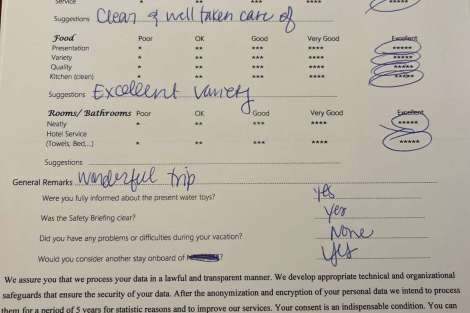 Service * ** *** ****
Suggestions Clean & well taken care of
Food Poor OK Good Very Good Excellent
Presentation * ** *** **** *****
Variety * ** *** **** *****
Quality * ** *** **** *****
Kitchen (clean) * ** *** **** *****
Suggestions Excellent variety
Rooms/ Bathrooms Poor OK Good Very Good Excellent
Neatly ** *** **** *****
Hotel Service
(Towels, Bed,...) * ** *** **** *****
Suggestions
General Remarks wonderful trip
Were you fully informed about the present water toys? yes
Was the Safety Briefing clear? yes
Did you have any problems or difficulties during your vacation? None
Would you consider another stay onboard of yes
We assure you that we process your data in a lawful and transparent manner. We develop appropriate technical and organizational
safeguards that ensure the security of your data. After the anonymization and encryption of your personal data we intend to process
them for a period of 5 years for statistic reasons and to improve our services. Your consent is an indispensable condition. You can